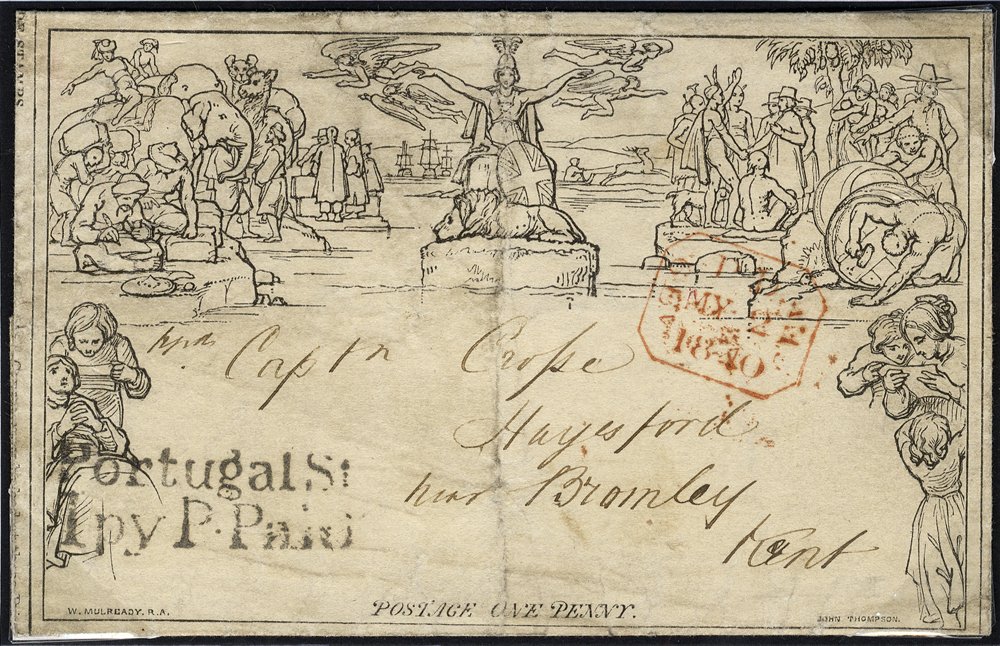 Captn Crosse
Hayesford
near Bromley
Kent
MY 2
1840
Portugal St
1py P. Paid
W. MULREADY. R.A.
POSTAGE ONE PENNY.
JOHN THOMPSON.